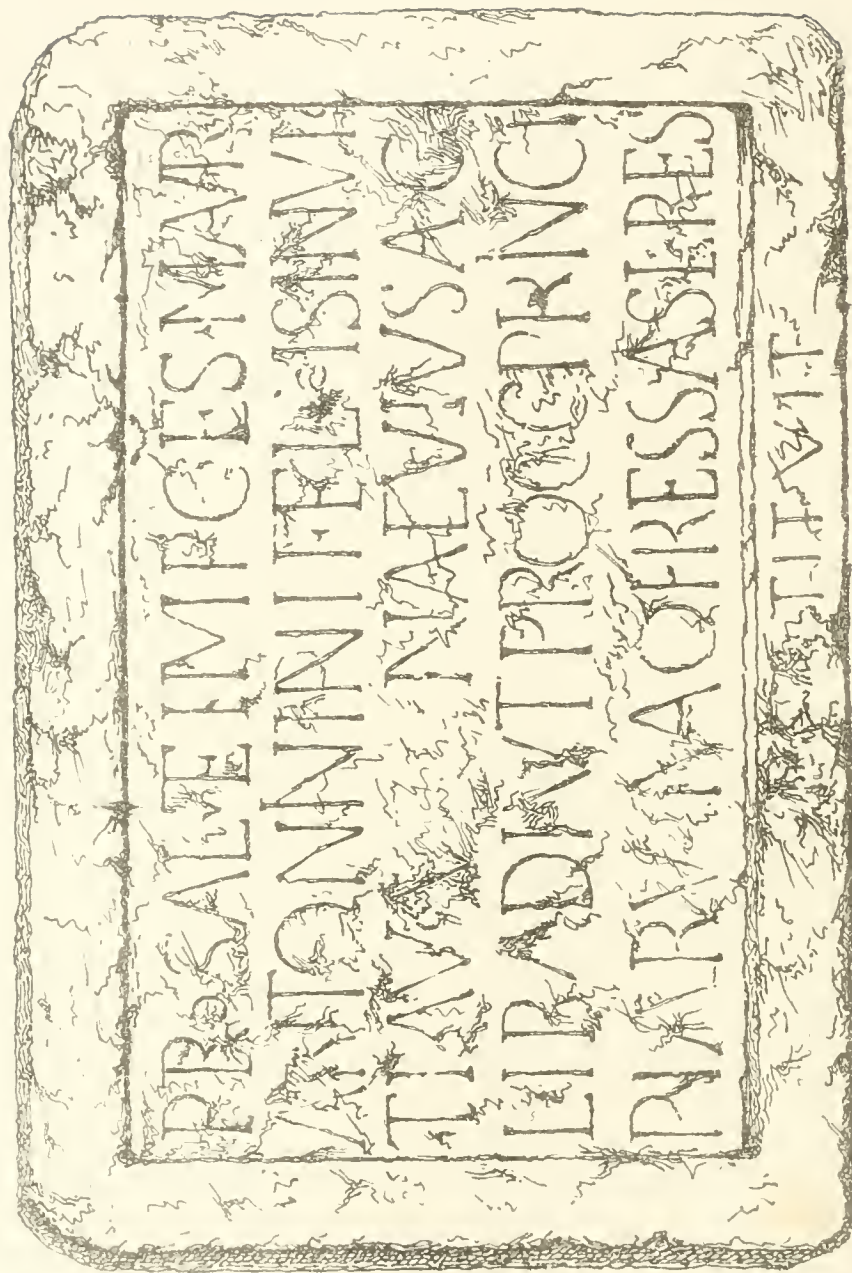 PRO SALE IMP CES MAR
ANTONINI FELI ISINVI
TIAV NAEVIVS AG
LIB ADIVT PROC PRINCI
PIA RVINA OPRESS ASLRES
TITVIT